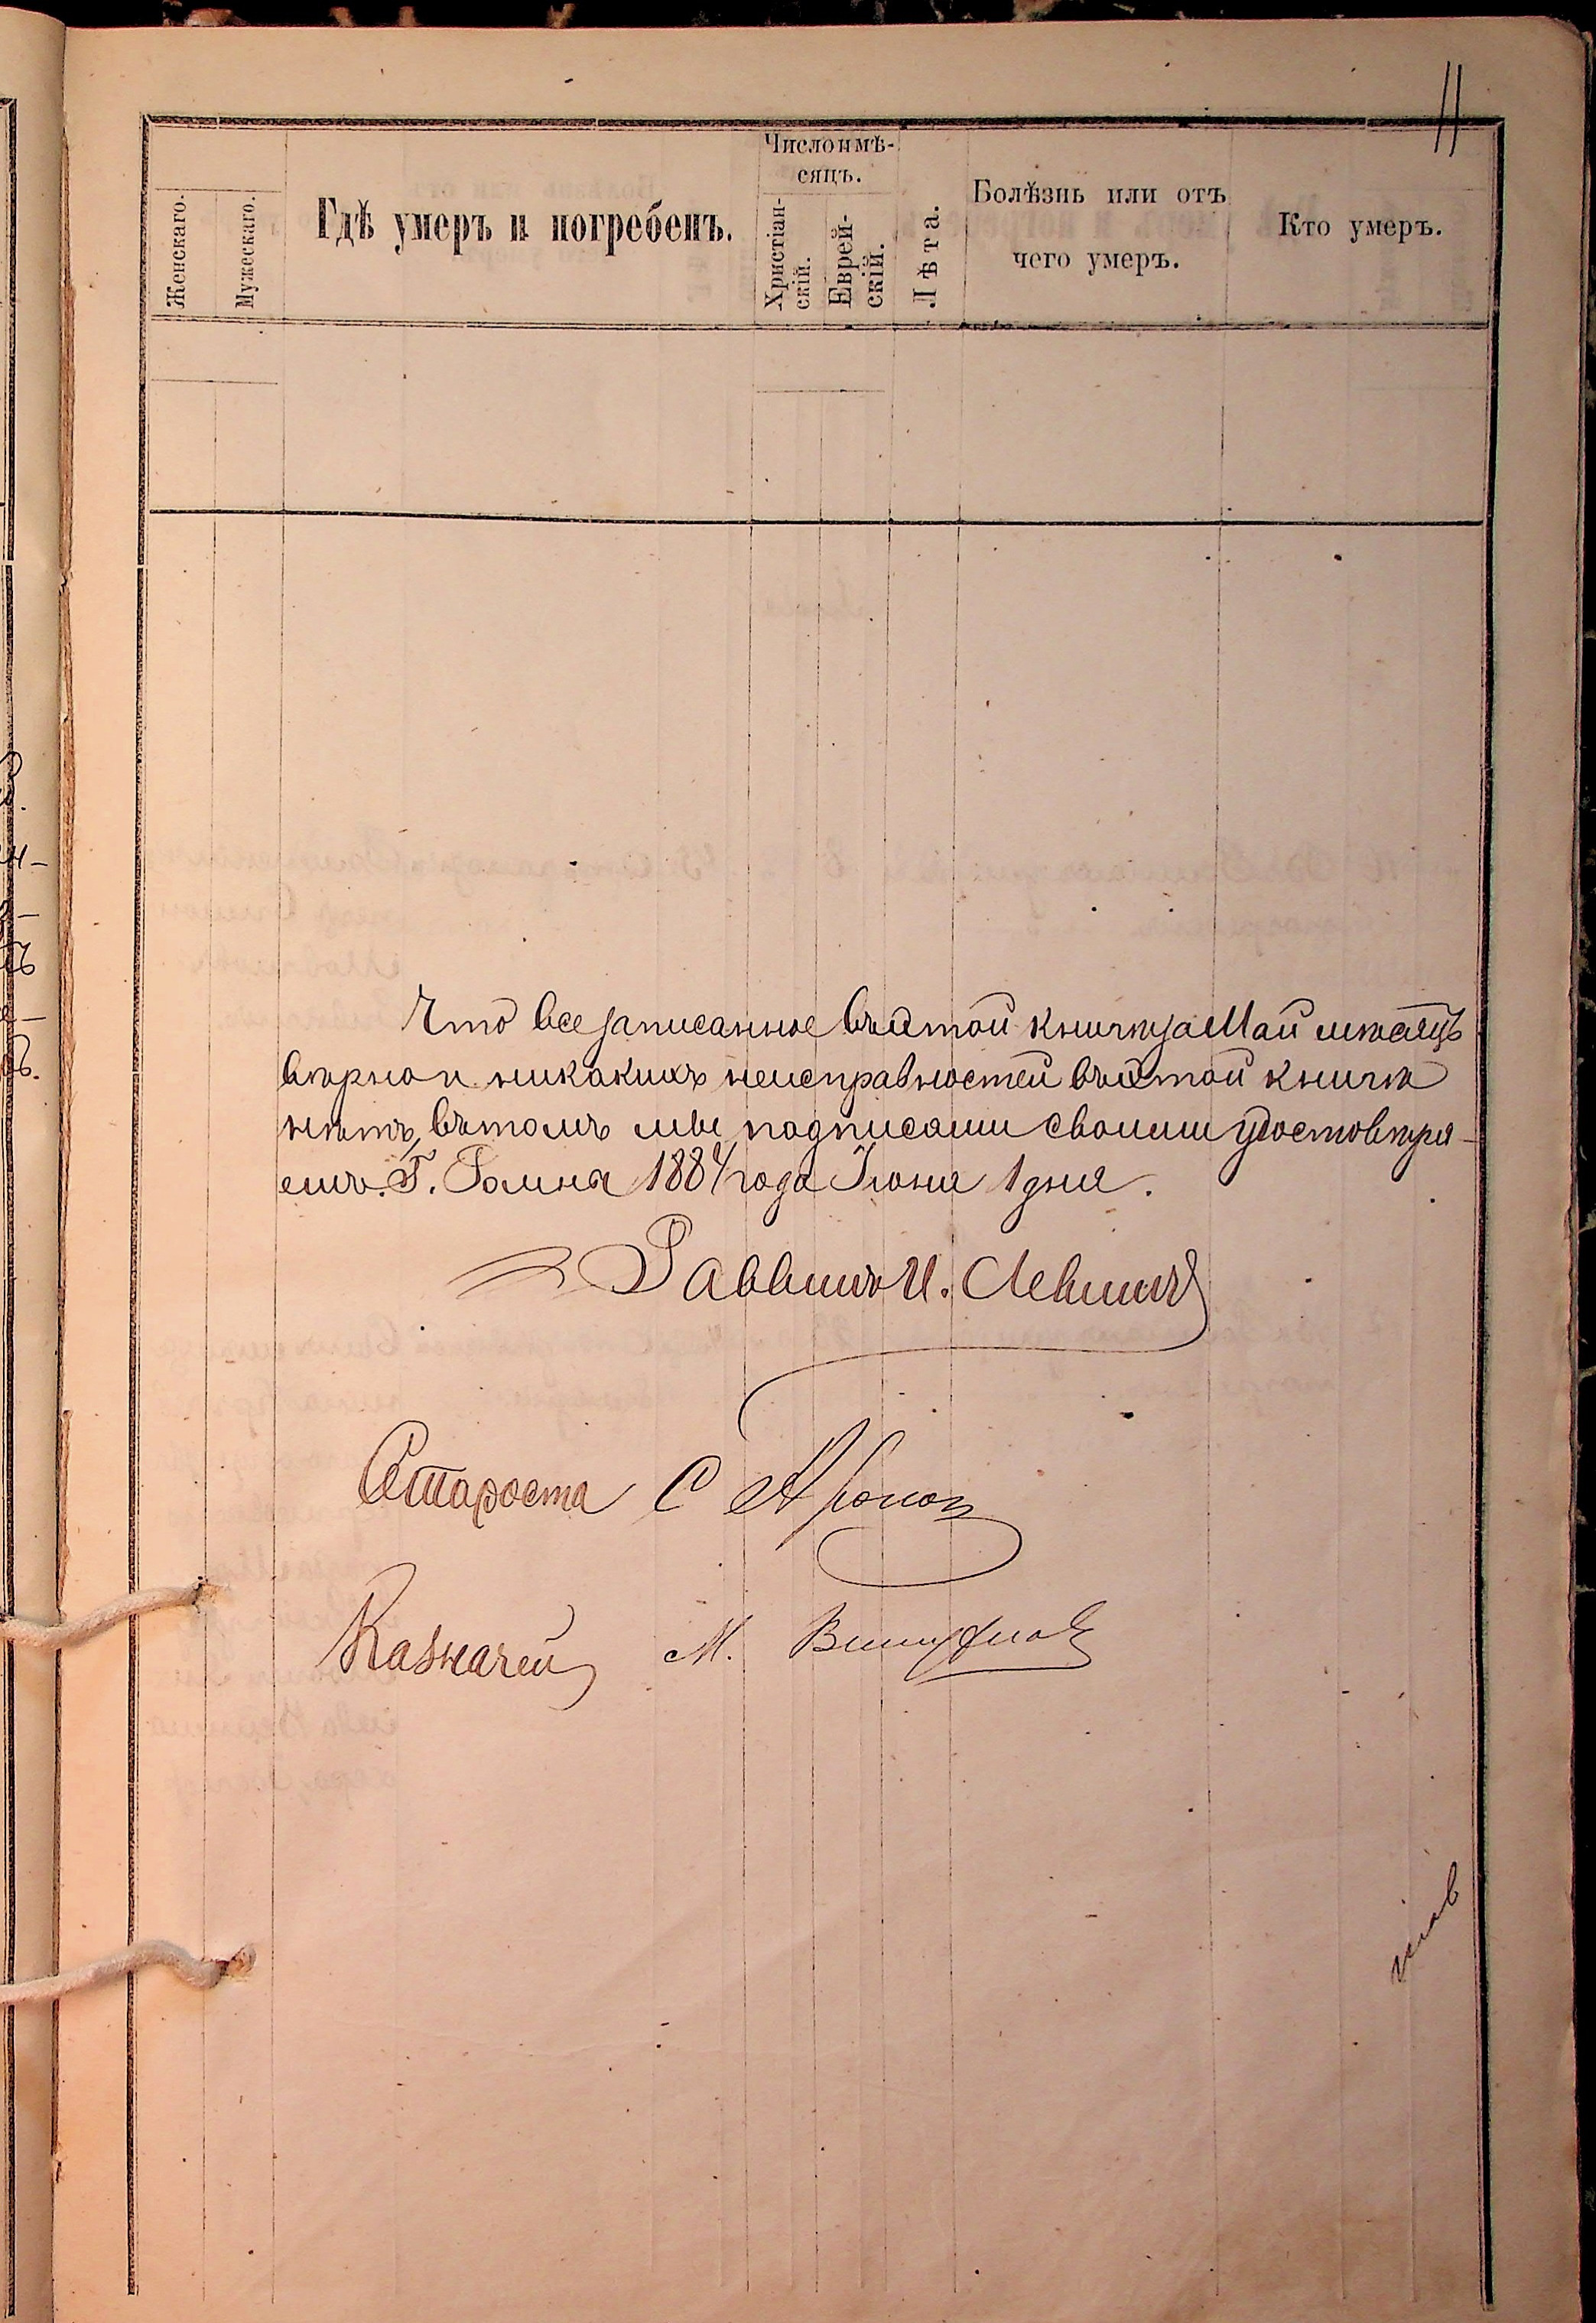 11
Числоимѣ-
сяцъ.
Женскаго.
Мужескаго.
Гдѣ умеръ и погребенъ.
Христіан-
скій.
Еврей-
скій.
Лѣта.
Болѣзнь или отъ
чего умеръ.
Кто умеръ.
Что все записанное въ этой книгѣ за Май мѣсяцъ
вѣрно и никакихъ неисправностей въ этой книгѣ
нѣтъ, въ томъ мы подписами своими удостовѣря-
емъ. Г. Ромна 1884 года Іюня 1 дня.
Раввинъ И. Левинъ
Староста С Аронов
Казначей М.